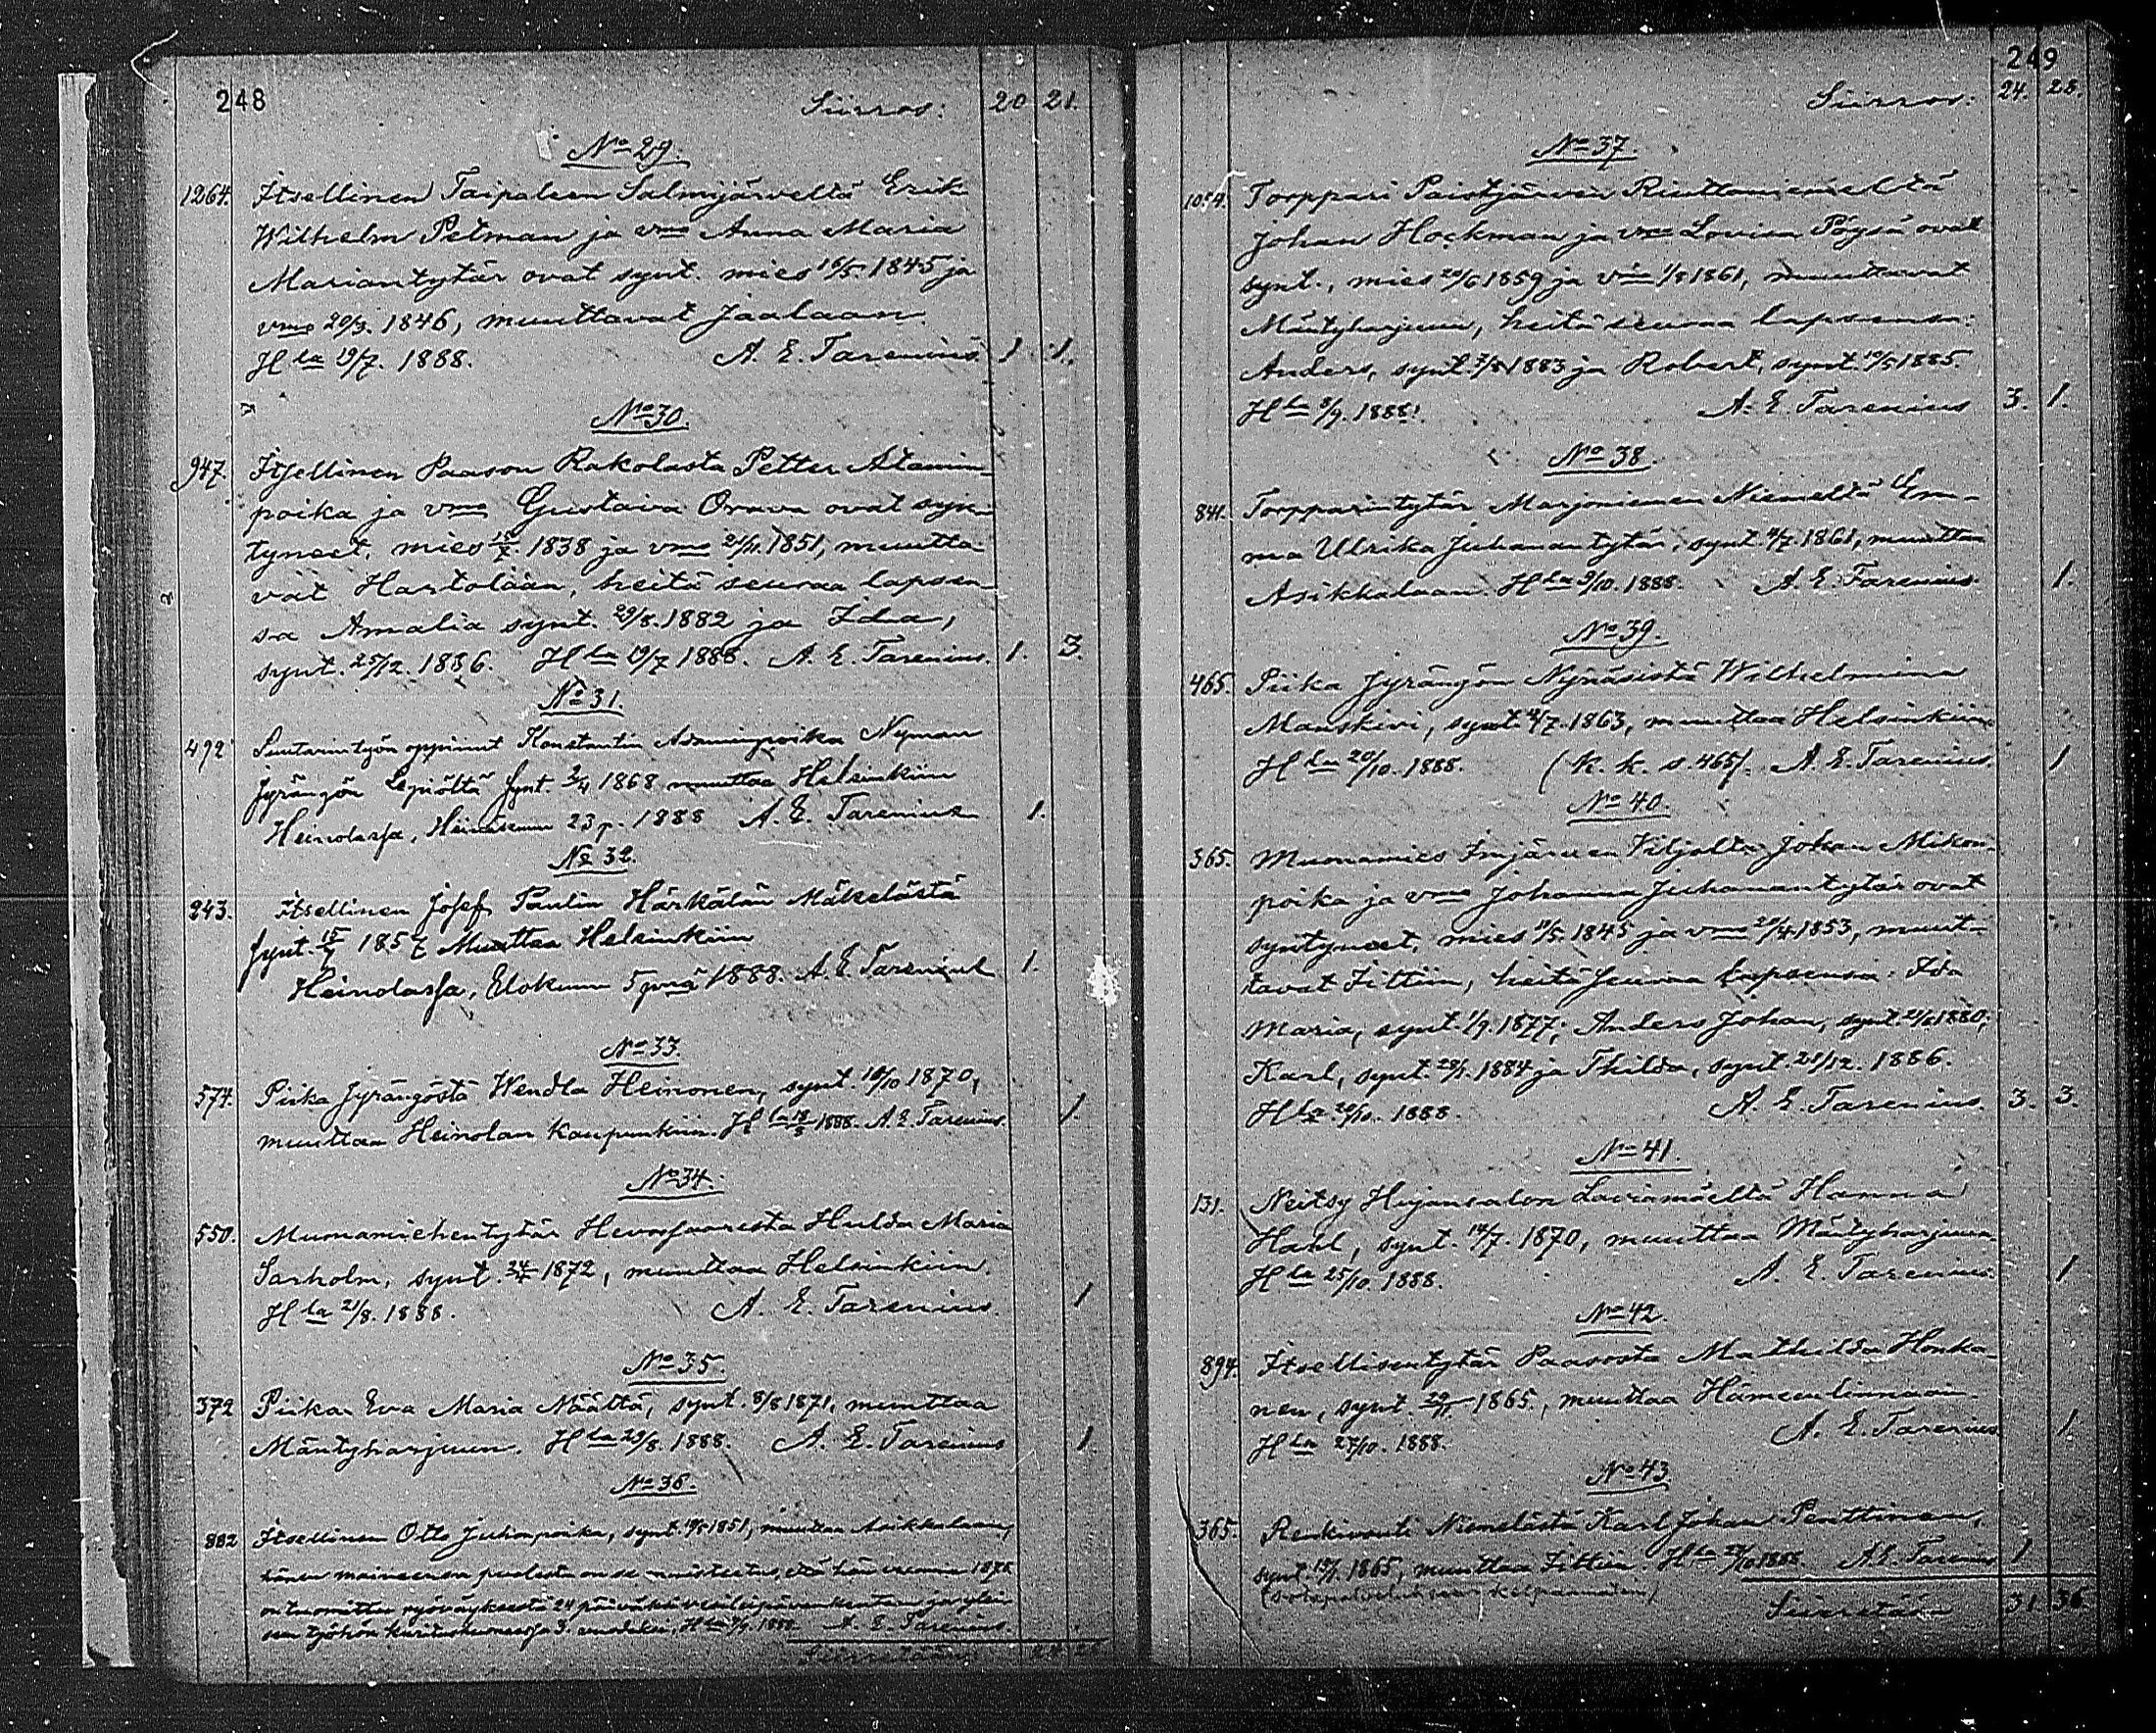 248 Siirros: 20 21.
No 29.
1264. Itsellinen Taipaleen Salmijärveltä Erik
Wilhelm Petman ja vmo Anna Maria
Mariantytär ovat synt. mies 16/5 1845 ja
vmo 20/3. 1846, muuttavat Jaalaan.
Hla 19/7. 1888. A. E. Tarenius 1 1.
No 30.
947. Itsellinen Paason Rakolasta Petter Atamin-
poika ja vmo Gustava Orava ovat syn-
tyneet, mies 1838 ja vmo 1851, muutta-
vat Hartolaan, heitä seuraa lapsen-
sa Amalia synt. 29/8. 1882 ja Ida,
synt. 25/12. 1886. Hla 19/7 1888. A. E. Tarenius. 1. 3.
No 31.
492 Suutarintyön oppinut Konstantin Adaminpoika Nyman
Jyrängön Lepiöltä synt. 3/4 1868 muuttaa Helsinkiin
Heinolassa, Heinäkuun 23 p. 1888 A. E. Tarenius 1.
No 32.
243. Itsellinen Josef Paulin Härkälän Mäkelästä
synt. 1857 Muuttaa Helsinkiin
Heinolassa, Elokuun 5 pnä 1888. A. E. Tarenius 1.
No 33.
574. Piika Jyrängöstä Wendla Heinonen, synt. 1870,
muuttaa Heinolan Kaupunkiin. Hla 1888. A. E. Tarenius. 1
No 34.
550. Muonamiehentytär Hevossaaresta Hulda Maria
Sarholm, synt. 1872, muuttaa Helsinkiin.
Hla 21/8. 1888. A. E. Tarenius. 1
No 35
372 Piika Eva Maria Määttä, synt. 8/8 1871, muuttaa
Mäntyharjuun. Hla 29/8. 1888. A. E. Tarenius 1
No 36.
882 Itsellinen Otto Juhonpoika, synt. 1851, muuttaa Asikkalaan,
hänen maineensa puolesta on se muistutus, että hän vuonna 1875
on tuomittu ryöväyksestä 24 päiväksi vesileipävankeuteen ja ylei-
sen työhön kuritushuoneessa 3. vuodeksi, Hla 1888. A. E. Tarenius
Siirretään 24 28
249
Siirros: 24. 28.
No 37.
Torppari Paistjärven Ruuttaniemeltä
Johan Hockman ja vmo Lovisa Pöysä ovat
synt., mies 20/6 1859 ja vmo 1/8 1861, muuttavat
Mäntyharjuun, heitä seuraa lapsensa:
Anders, synt. 1883 ja Robert, synt. 10/5 1885.
Hla 8/9. 1888. A. E. Tarenius 3. 1.
No 38.
841. Torpparintytär Marjoniemen Niemeltä Em-
ma Ulrika Juhanantytär, synt. 4/7. 1861, muuttaa
Asikkalaan. Hla 9/10. 1888. A. E. Tarenius. 1.
No 39.
465. Piika Jyrängön Nynäsistä Wilhelmina
Manskivi, synt. 1863, muuttaa Helsinkiin.
Hla 20/10. 1888. (k. k. s. 465). A. E. Tarenius. 1
No 40.
365. Muonamies Imjärven Viljolta Johan Mikon-
poika ja vmo Johanna Juhanantytär ovat
syntyneet, mies 11/5. 1845 ja vmo 20/4 1853, muut-
tavat Iittiin, heitä seuraa lapsensa: Ida
Maria, synt. 1/9. 1877; Anders Johan, synt. 1880;
Karl, synt. 1884 ja Thilda, synt. 21/12. 1886.
Hla 20/10. 1888. A. E. Tarenius. 3. 3.
No 41.
131. Neitsy Hujansalon Laviamäeltä Hanna
Hahl, synt. 14/7. 1870, muuttaa Mäntyharjuun.
Hla 25/10. 1888. A. E. Tarenius. 1
No 42.
894. Itsellisentytär Paasosta Mathilda Honka-
nen, synt. 1865, muuttaa Hämeenlinnaan.
Hla 27/10. 1888. A. E. Tarenius 1.
No 43
365. Renkivouti Niemelästä Karl Johan Penttinen,
synt. 1865, muuttaa Iittiin. Hla 1888. A. E. Tarenius 1
(sotapalvelukseen kelpaamaton)
Siirretään 31. 36.